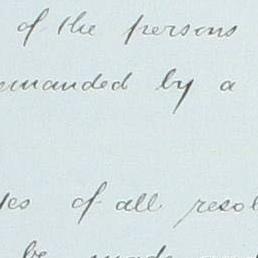 of the persons
manded by a
of all resol
be made